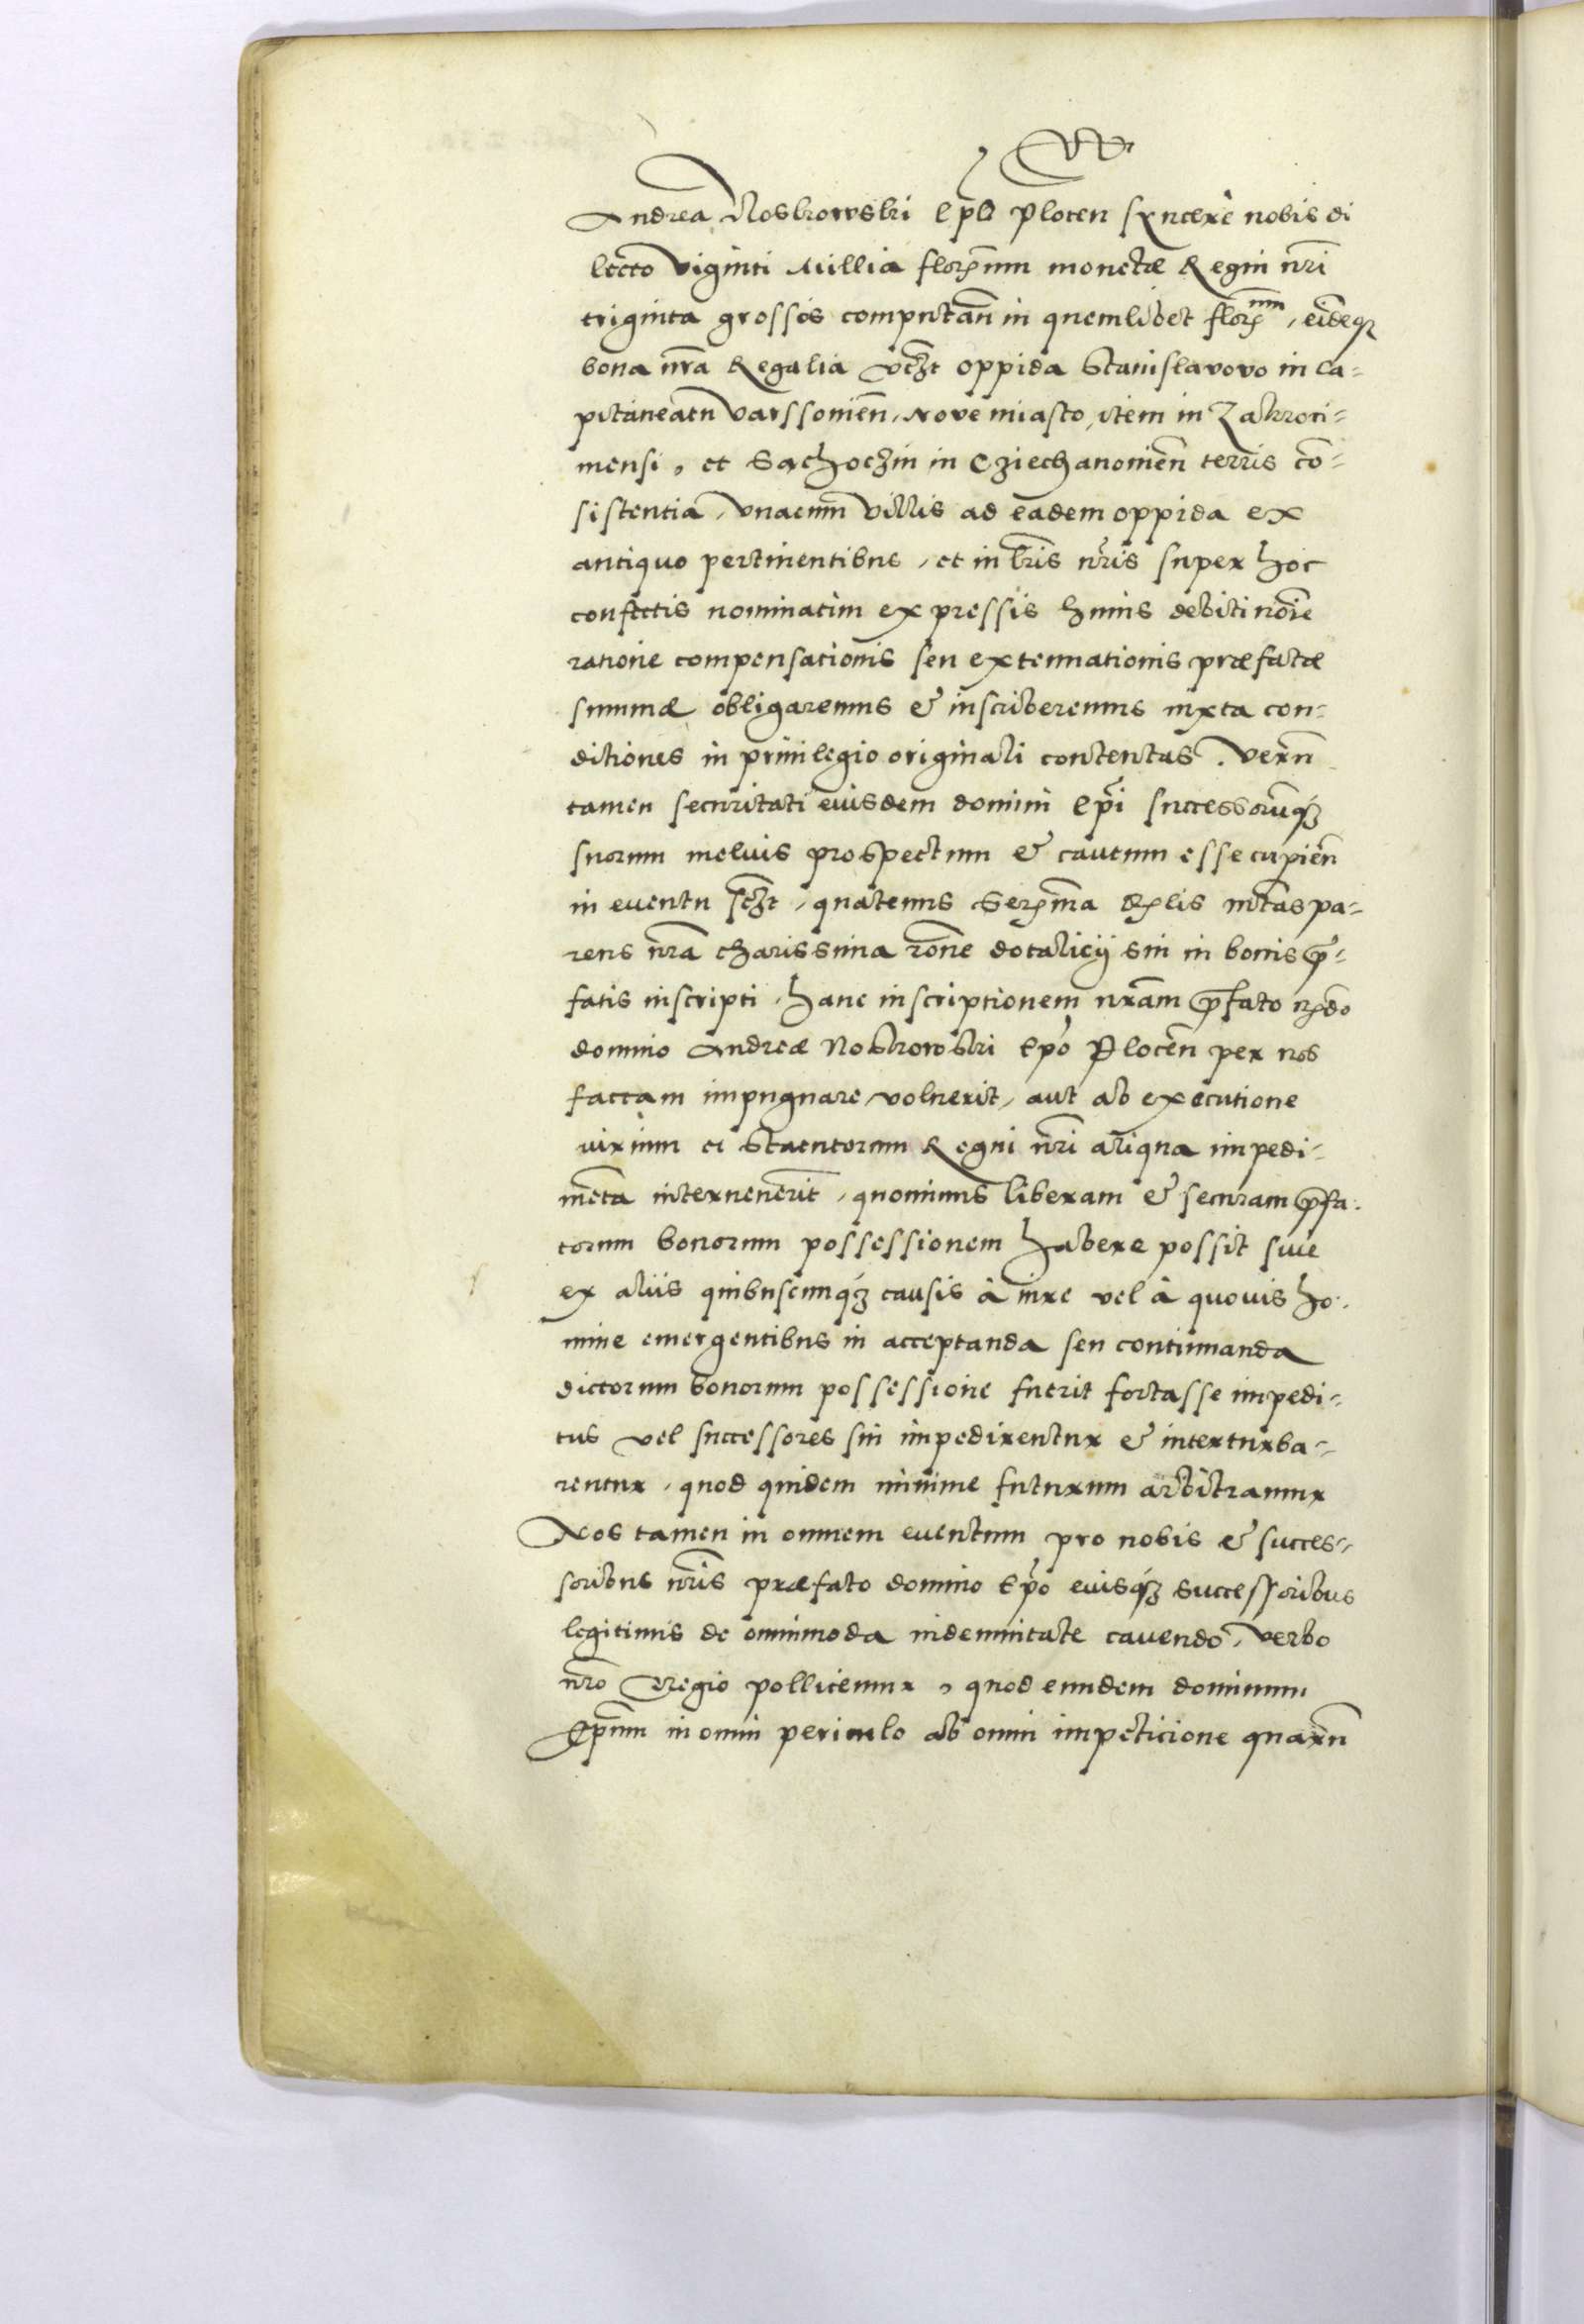 Andrea Noskowski Ep̄o Plocen syncere nobis di
lecto viginti Millia floren̄um monetæ Regni nr̄i
triginta grossos computan̄ in quemlibet floren̄um, eidēq
bona nr̄a Regalia vczt oppida Stanislavovo in Ca-
pitaneatu Varssovien̄, Nove miasto, item in Zakroci-
mensi, et Sochoczin in Cziechanovien̄ terris cō-
sistentia, vnacum villis ad eadem oppida ex
antiquo pertinentibus, et in lr̄is nr̄is super hoc
confectis nominatim expressis huius debiti noīe
ratione compensationis seu extenuationis præfatæ
summæ obligaremus & inscriberemus iuxta con-
ditiones in priuilegio originali contentas. Verū
tamen securitati eiusdem domini Ep̄i successorūq́ꝫ
suorum melius prospectum & cautum esse cupien̄
in euentu sczt, quatenus Seren̄ma Rglis mt̄as pa-
rens nr̄a charissima rōne dotalicij sui in bonis p̄-
fatis inscripti, hanc inscriptionem nr̄am p̄fato Rn̄do
domino Andreæ Noskowski Ep̄o Plocen̄ per nos
factam impugnare voluerit, aut ab executione
iurium et statutorum Regni nr̄i aliqua impedi-
mēta interuenerīt, quominus liberam & securam p̄fa-
torum bonorum possessionem habere possit siue
ex aliis quibuscumq́ꝫ causis à iure vel à quouis ho-
mine emergentibus in acceptanda seu continuanda
dictorum bonorum possessione fuerit fortasse impedi-
tus vel successores sui impedirentur & interturba-
rentur, quod quidem minime futurum arbitramur
Nos tamen in omnem euentum pro nobis & succes-
soribus nr̄is præfato domino Ep̄o eiusq́ꝫ successoribus
legitimis de omnimoda indemnitate cauendo, verbo
nr̄o Regio pollicemur, quod eundem dominum
Ep̄um in omni periculo ab omni impeticione quarū